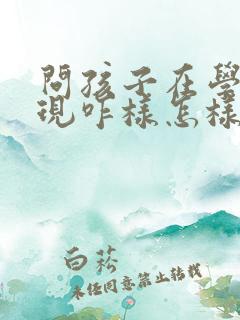 問孩子在學
現咋樣怎樣
白菘
未经同意禁止转载